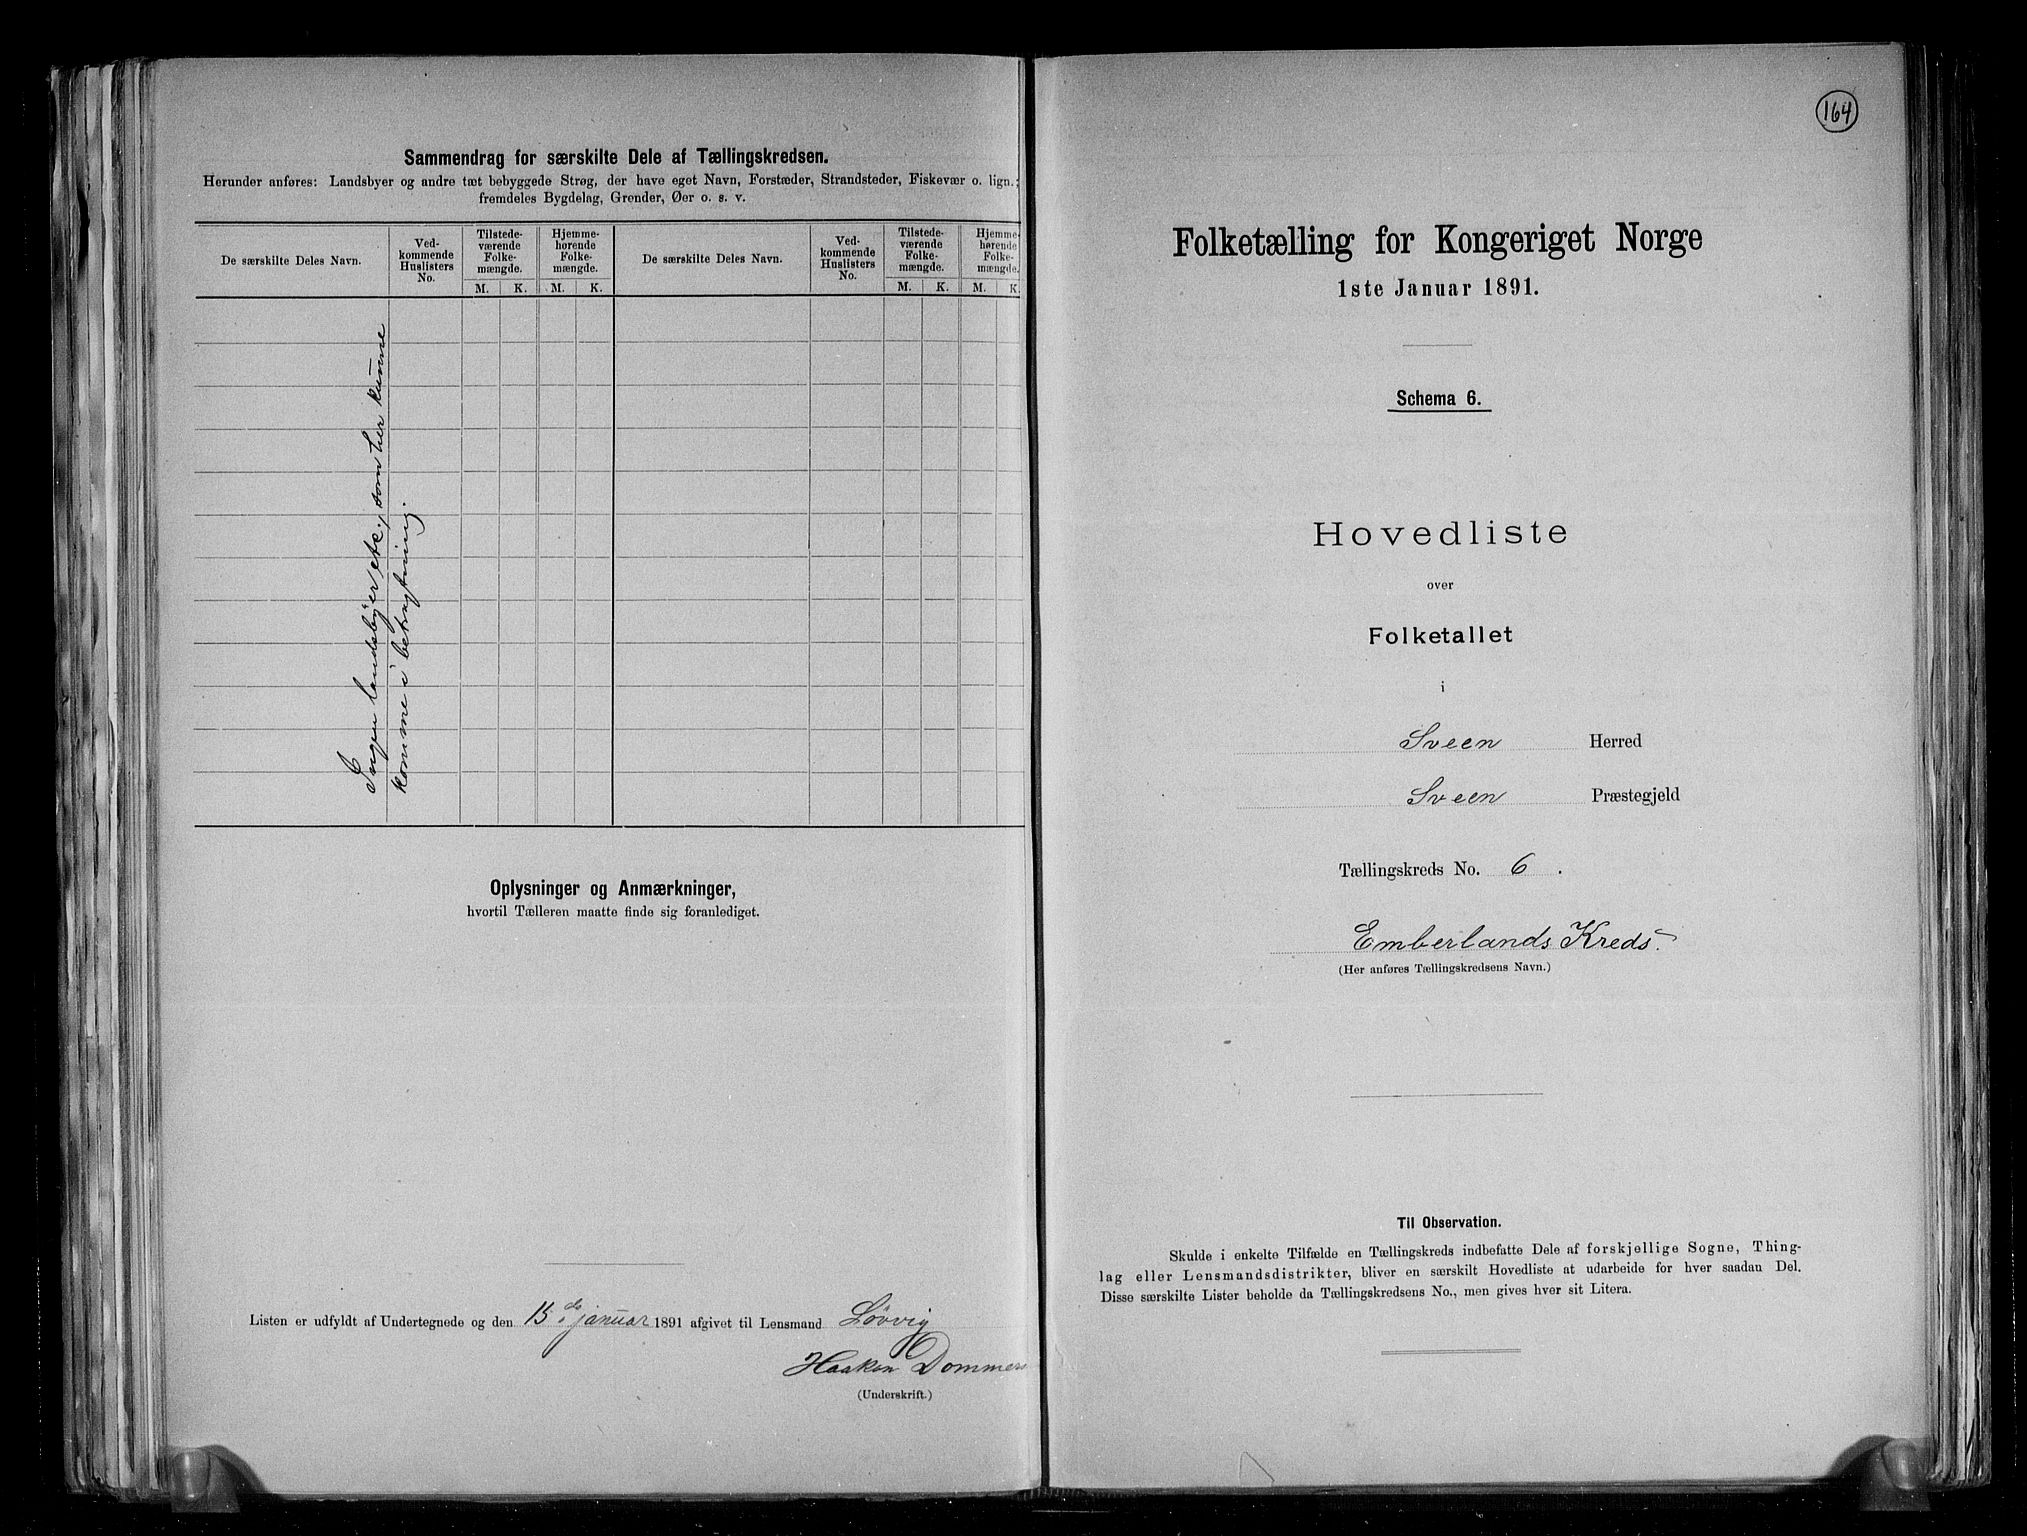 Sammendrag for særskilte Dele af Tællingskredsen.
Herunder anføres: Landsbyer og andre tæt bebyggede Strøg, der have eget Navn, Forstæder, Strandsteder, Fiskevær o. lign.;
fremdeles Bygdelag, Grender, Øer o. s. v.
De særskilte Deles Navn.
Ved-
kommende
Huslisters
No.
Tilstede-
værende
Folke-
mængde.
M. K.
Hjemme-
hørende
Folke-
mængde.
M. K.
De særskilte Deles Navn.
Ved-
kommende
Huslisters
No.
Tilstede-
værende
Folke-
mængde.
M. K.
Hjemme-
hørende
Folke-
mængde.
M. K.
Ingen landsbyer etc., som her kunne
komme i betragtning.
Oplysninger og Anmærkninger,
hvortil Tælleren maatte finde sig foranlediget.
Listen er udfyldt af Undertegnede og den 15de januar 1891 afgivet til Lensmand Løvvig
Haakon Dommers
(Underskrift.)
164
Folketælling for Kongeriget Norge
1ste Januar 1891.
Schema 6.
Hovedliste
over
Folketallet
i
Sveen Herred
Sveen Præstegjeld
Tællingskreds No. 6.
Emberlands Kreds.
(Her anføres Tællingskredsens Navn.)
Til Observation.
Skulde i enkelte Tilfælde en Tællingskreds indbefatte Dele af forskjellige Sogne, Thing-
lag eller Lensmandsdistrikter, bliver en særskilt Hovedliste at udarbeide for hver saadan Del.
Disse særskilte Lister beholde da Tællingskredsens No., men gives hver sit Litera.